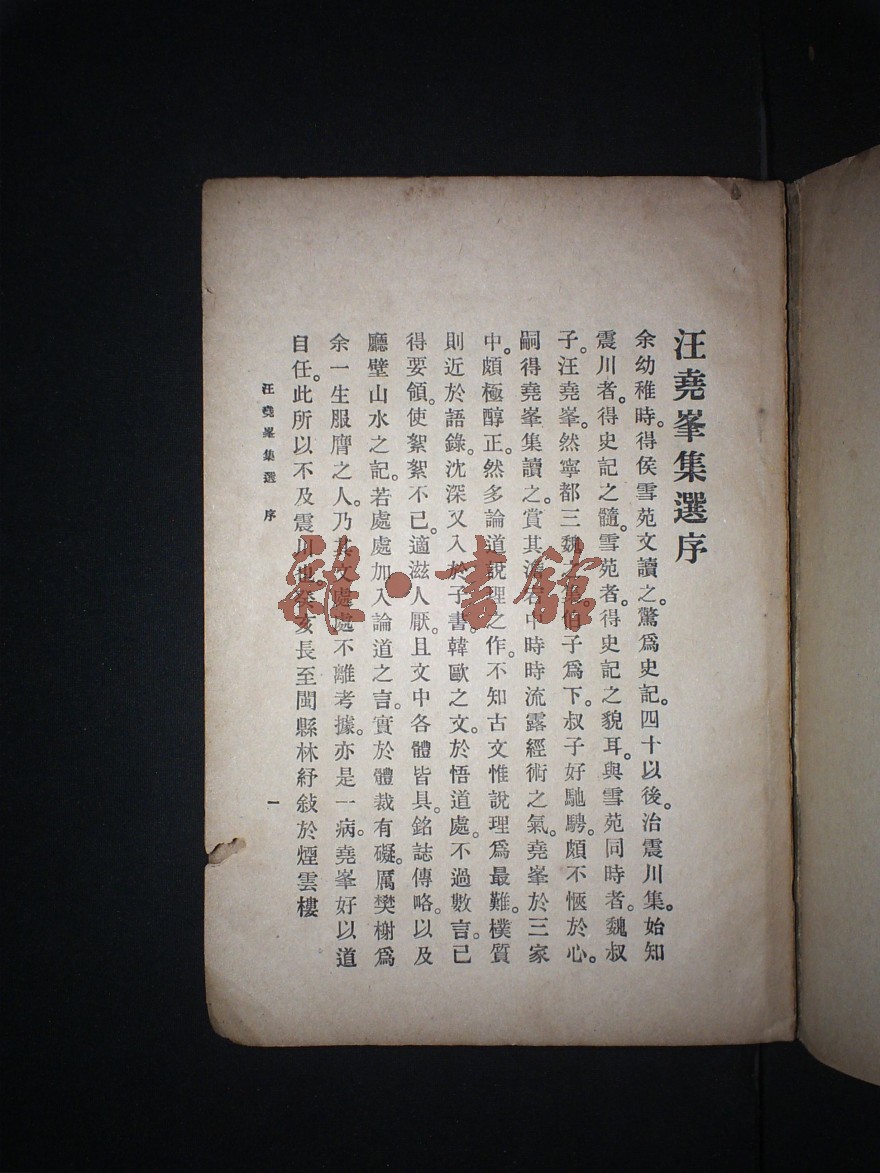 汪堯峯集選序
余幼稚時。得侯雪苑文讀之。驚爲史記。四十以後。治震川集。始知
震川者。得史記之髓。雪苑者。得史記之貌耳。與雪苑同時者。魏叔
子。汪堯峯。然寧都三魏之伯子爲下。叔子好馳騁。頗不愜於心。
嗣得堯峯集讀之。賞其中時時流露經術之氣。堯峯於三家
中。頗極醇正。然多論道說理之作。不知古文惟說理爲最難。樸質
則近於語錄。沈深又入於子書。韓歐之文。於悟道處。不過數言。已
得要領。使絮絮不已。適滋人厭。且文中各體皆具。銘誌傳略。以及
廳壁山水之記。若處處加入論道之言。實於體裁有礙。厲樊榭爲
余一生服膺之人。乃其文處處不離考據。亦是一病。堯峯好以道
自任。此所以不及震川也。癸亥長至閩縣林紓敍於煙雲樓
汪堯峯集選 序
一
雜·書館